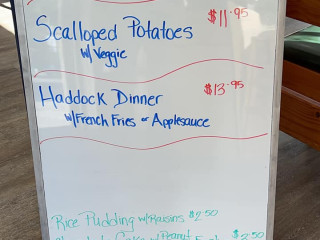 Scalloped Potatoes $11.95
w/ Veggie
Haddock Dinner $13.95
w/French Fries or Applesauce
Rice Pudding w/Raisins $2.50
Cake w/ Peanut $2.50